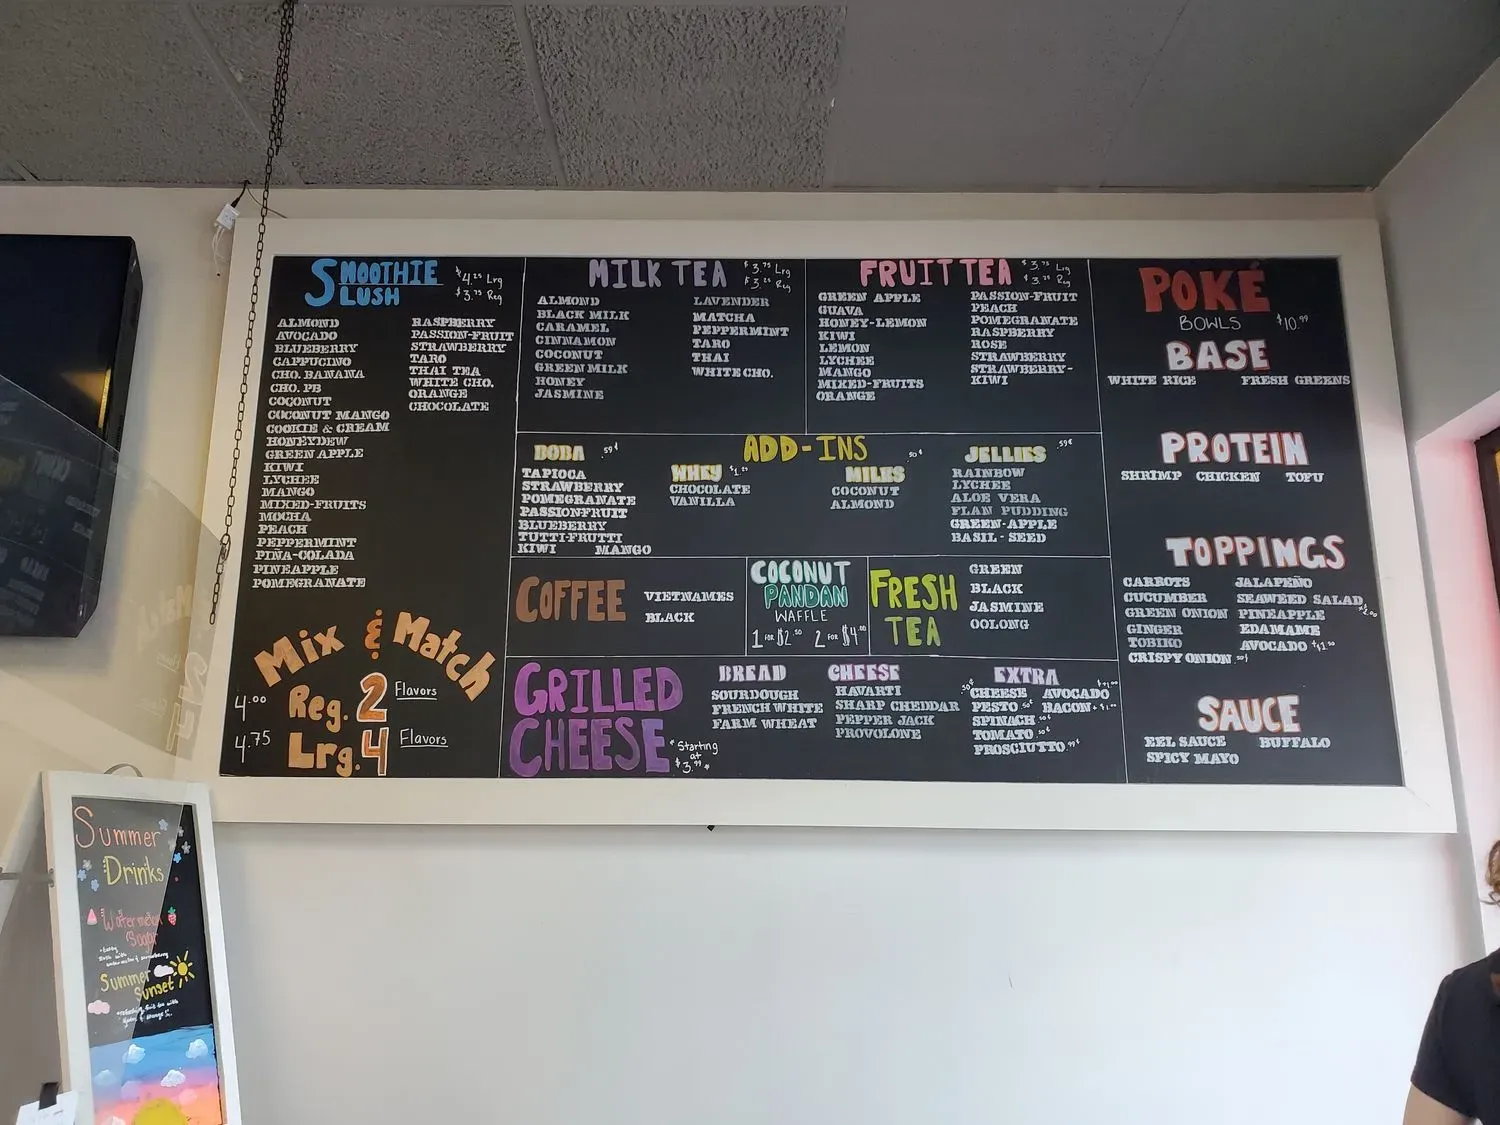 SMOOTHIE
SLUSH
$4.25 Lrg
$3.75 Reg
ALMOND
AVOCADO
BLUEBERRY
CAPPUCINO
CHO. BANANA
CHO. PB
COCONUT
COCONUT MANGO
COOKIE & CREAM
HONEYDEW
GREEN APPLE
KIWI
LYCHEE
MANGO
MIXED-FRUITS
MOCHA
PEACH
PEPPERMINT
PIÑA-COLADA
PINEAPPLE
POMEGRANATE
RASPBERRY
PASSION-FRUIT
STRAWBERRY
TARO
THAI TEA
WHITE CHO.
ORANGE
CHOCOLATE
Mix & Match
4.00 Reg. 2 Flavors
4.75 Lrg. 4 Flavors
MILK TEA
$3.75 Lrg
$3.25 Reg
ALMOND
BLACK MILK
CARAMEL
CINNAMON
COCONUT
GREEN MILK
HONEY
JASMINE
LAVENDER
MATCHA
PEPPERMINT
TARO
THAI
WHITE CHO.
FRUIT TEA
$3.75 Lrg
$3.25 Reg
GREEN APPLE
GUAVA
HONEY-LEMON
KIWI
LEMON
LYCHEE
MANGO
MIXED-FRUITS
ORANGE
PASSION-FRUIT
PEACH
POMEGRANATE
RASPBERRY
ROSE
STRAWBERRY
STRAWBERRY-
KIWI
ADD-INS
BOBA .59¢
TAPIOCA
STRAWBERRY
POMEGRANATE
PASSIONFRUIT
BLUEBERRY
TUTTI-FRUTTI
KIWI MANGO
WHEY
CHOCOLATE
VANILLA
MILKS .50¢
COCONUT
ALMOND
JELLIES .59¢
RAINBOW
LYCHEE
ALOE VERA
FLAN PUDDING
GREEN-APPLE
BASIL-SEED
COFFEE
VIETNAMES
BLACK
COCONUT
PANDAN
WAFFLE
1 FOR $2.50 2 FOR $4.00
FRESH
TEA
GREEN
BLACK
JASMINE
OOLONG
GRILLED
CHEESE
*Starting
at
$3.99*
BREAD
SOURDOUGH
FRENCH WHITE
FARM WHEAT
CHEESE
HAVARTI
SHARP CHEDDAR
PEPPER JACK
PROVOLONE
EXTRA
.50¢ CHEESE AVOCADO +$1.00
PESTO .50¢ BACON +$1.00
SPINACH .50¢
TOMATO .50¢
PROSCIUTTO .99¢
POKÉ
BOWLS $10.99
BASE
WHITE RICE FRESH GREENS
PROTEIN
SHRIMP CHICKEN TOFU
TOPPINGS
CARROTS
CUCUMBER
GREEN ONION
GINGER
TOBIKO
CRISPY ONION .50¢
JALAPEÑO
SEAWEED SALAD
PINEAPPLE
EDAMAME
AVOCADO +$1.50
SAUCE
EEL SAUCE BUFFALO
SPICY MAYO
Summer
Drinks
Watermelon
Sugar
Summer
Sunset